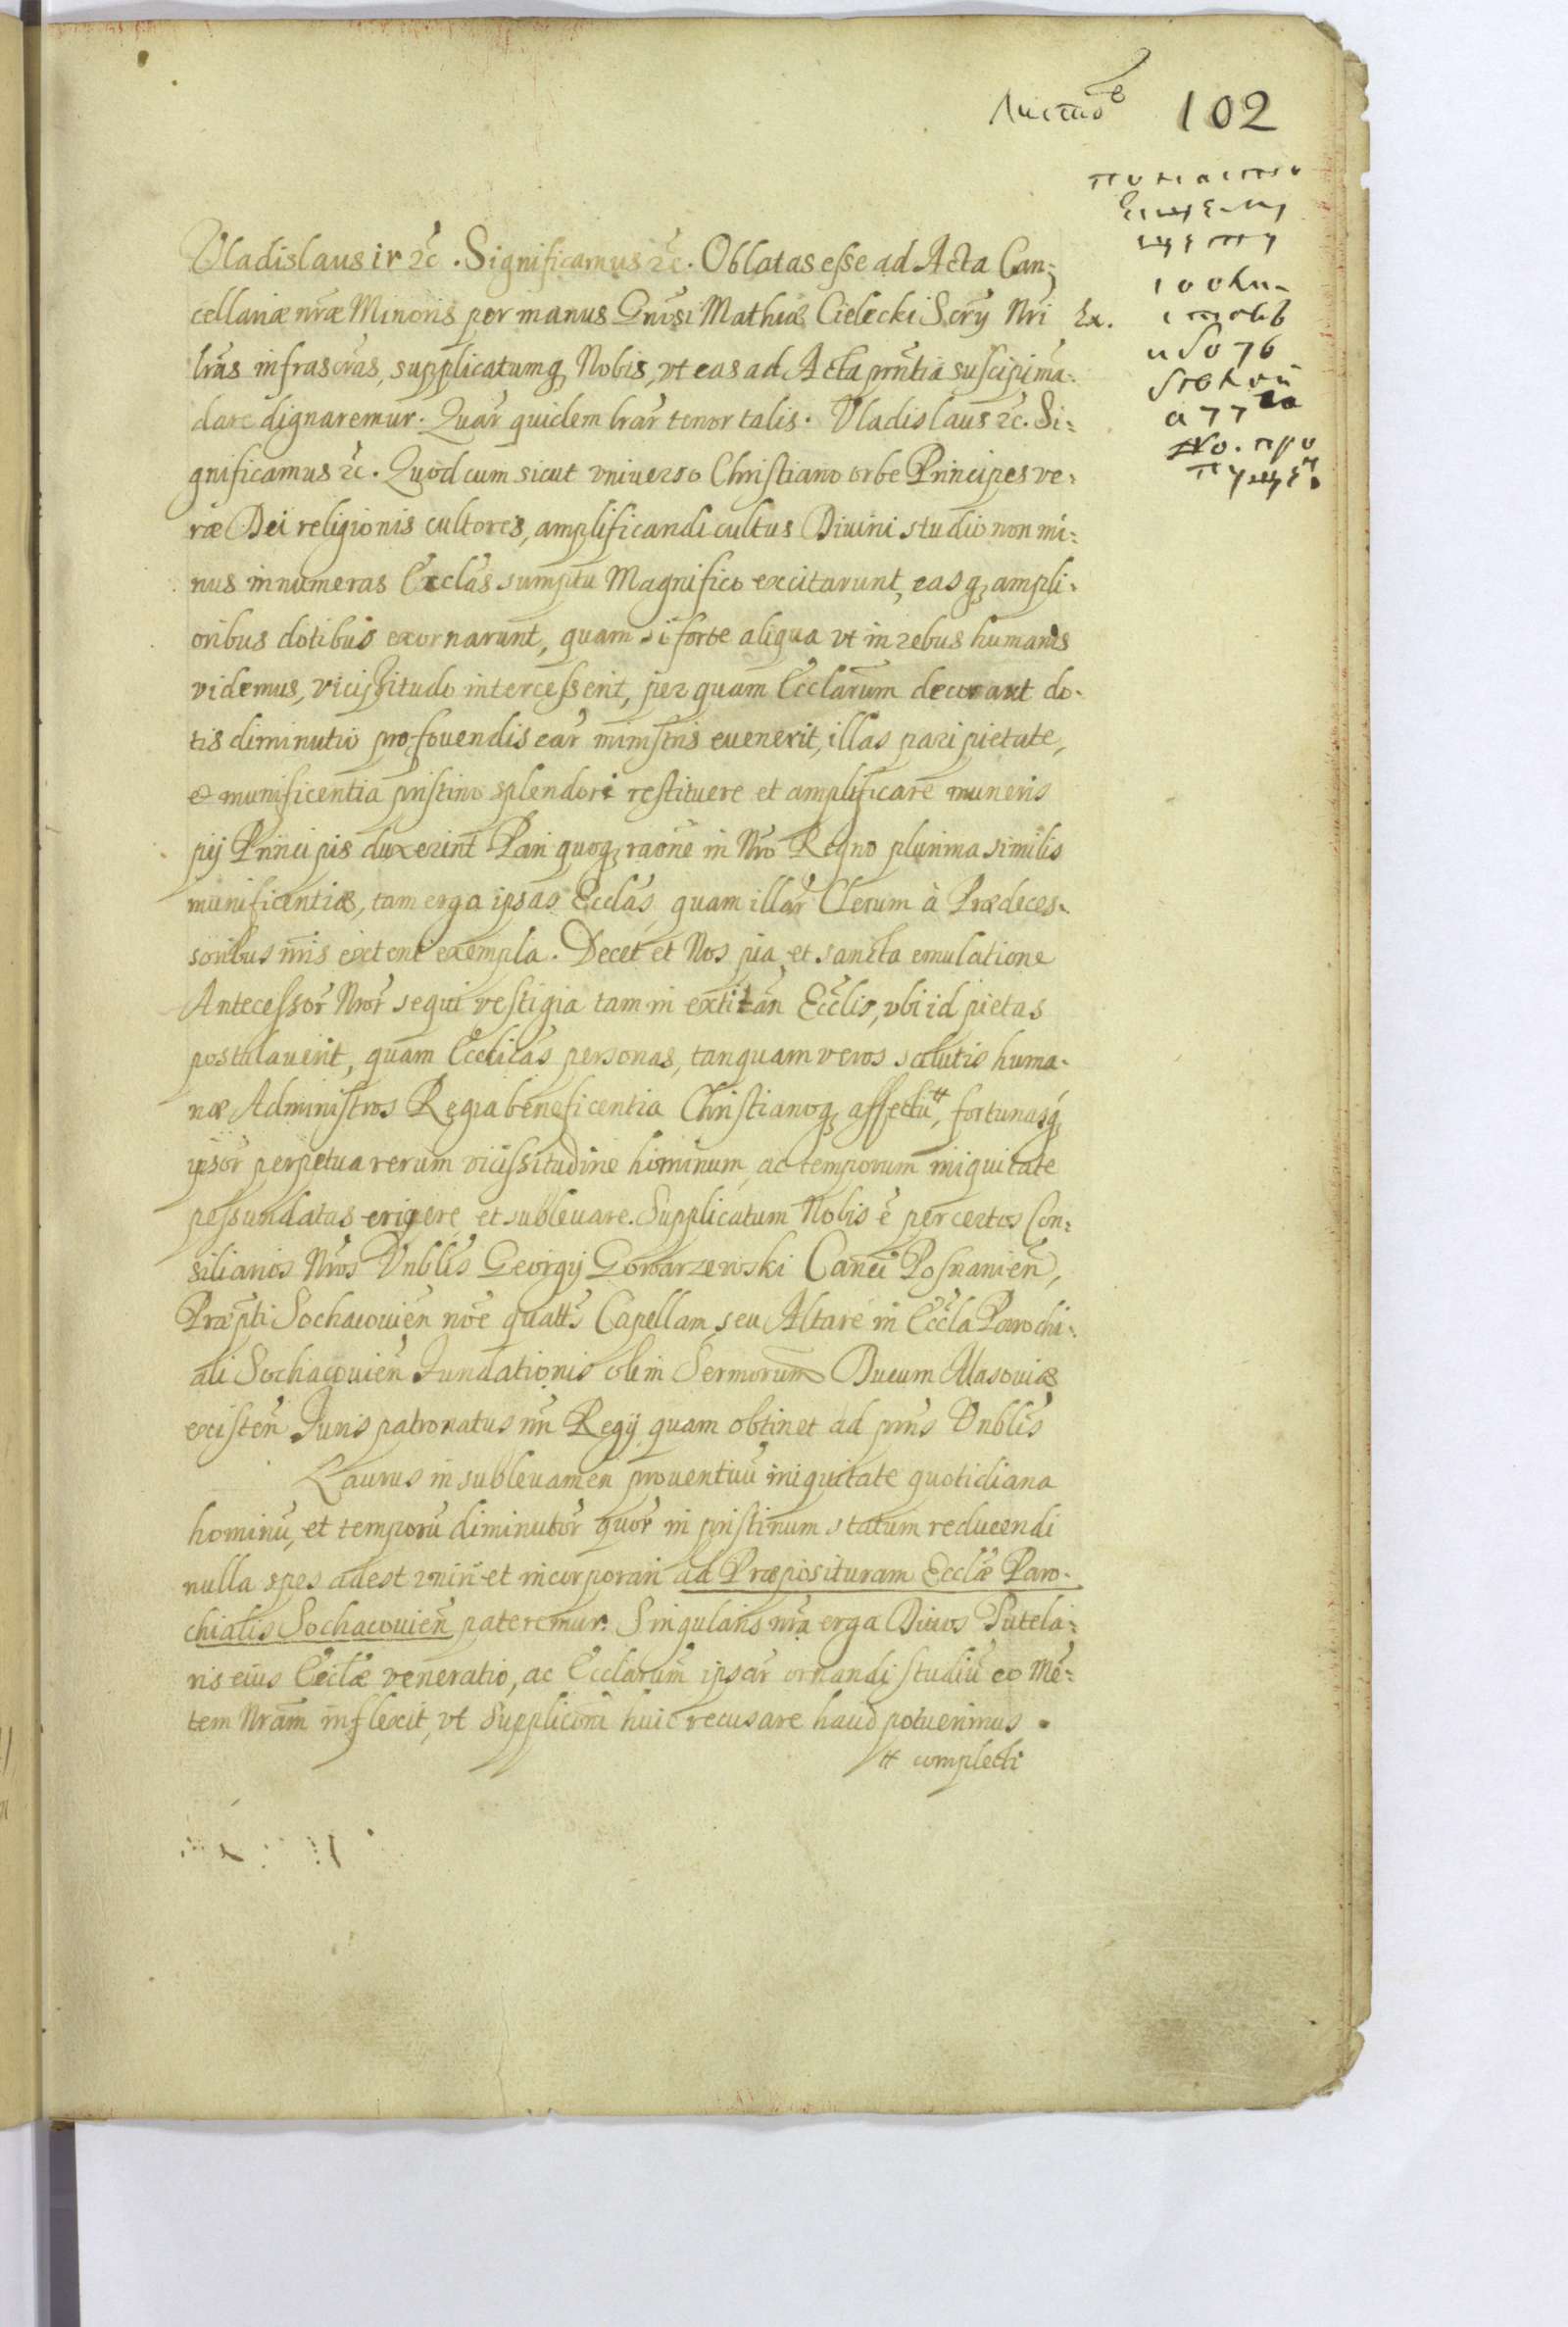 Листов 102
Vladislaus iv &c. Significamus &c. Oblatas esse ad Acta Can:
cellariæ nræ Minoris per manus Gnosi Mathiæ Cielecki Scrij Nri
Ex.
lras infrascras, supplicatumq Nobis, vt eas ad Acta prntia suscipi ma:
dare dignaremur. Quar quidem lrar tenor talis. Vladislaus &c. Si:
gnificamus &c. Quod cum sicut vniuerso Christiano orbe Principes ve:
ræ Dei religionis cultores, amplificandi cultus Diuini studio non mi:
nus innumeras Ecclas sumptu Magnifico excitarunt, easq ampli:
oribus dotibus exornarunt, quam si forte aliqua vt in rebus humanis
videmus, vicissitudo intercesserit, per quam Ecclarum decor aut do:
tis diminutio pro fouendis ear ministris euenerit, illas pari pietate,
& munificentia pristino splendori restituere et amplificare muneris
pij Principis duxerint Pari quoq raone in Nro Regno plurima similis
munificentiæ, tam erga ipsas Ecclas, quam illar Clerum à Prædeces:
soribus nris extent exempla. Decet et Nos pia et sancta emulatione
Antecessor Nror sequi vestigia tam in Ecclis, vbi id pietas
postulauerit, quam Ecclicas personas, tanquam veros salutis huma:
næ Administros Regia beneficentia Christianoq affectu # , fortunasq
ipsor perpetua rerum vicissitudine hominum, ac temporum iniquitate
pessundatas erigere et subleuare. Supplicatum Nobis e per certos Con:
siliarios Nros Vnblis Georgij Gowarzewski Canci Posnanien,
Præpti Sochacouien noe quatts Capellam seu Altare in Eccla Parochi:
ali Sochacouien Fundationis olim Sermorum Ducum Masouiæ
existen Juris patronatus nri Regij quam obtinet ad prns Vnblis
Laurus in subleuamen prouentuu iniquitate quotidiana
hominu, et temporu diminutor quor in pristinum statum reducendi
nulla spes adest vniri et incorporari ad Præposituram Ecclæ Paro:
chialis Sochacouien pateremur. Singularis nra erga Diuos Tutela:
ris eius Ecclæ veneratio, ac Ecclarum ipsar ornandi studiu eo Me:
tem Nram inflexit, vt Supplicõni huic recusare haud potuerimus.
# complecti